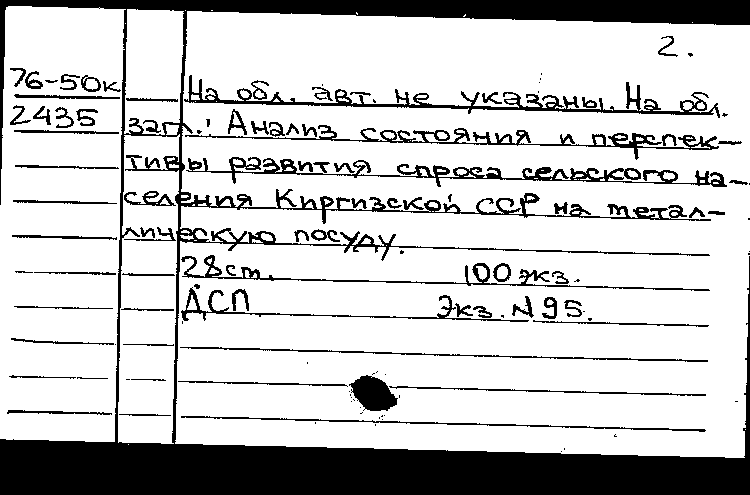 2.
76-50к
2435
На обл. авт. не указаны. На обл.
загл.: Анализ состояния и перспек-
тивы развития спроса сельского на-
селения Киргизской ССР на метал-
лическую посуду.
28 ст. 100 экз.
ДСП Экз. N 95.